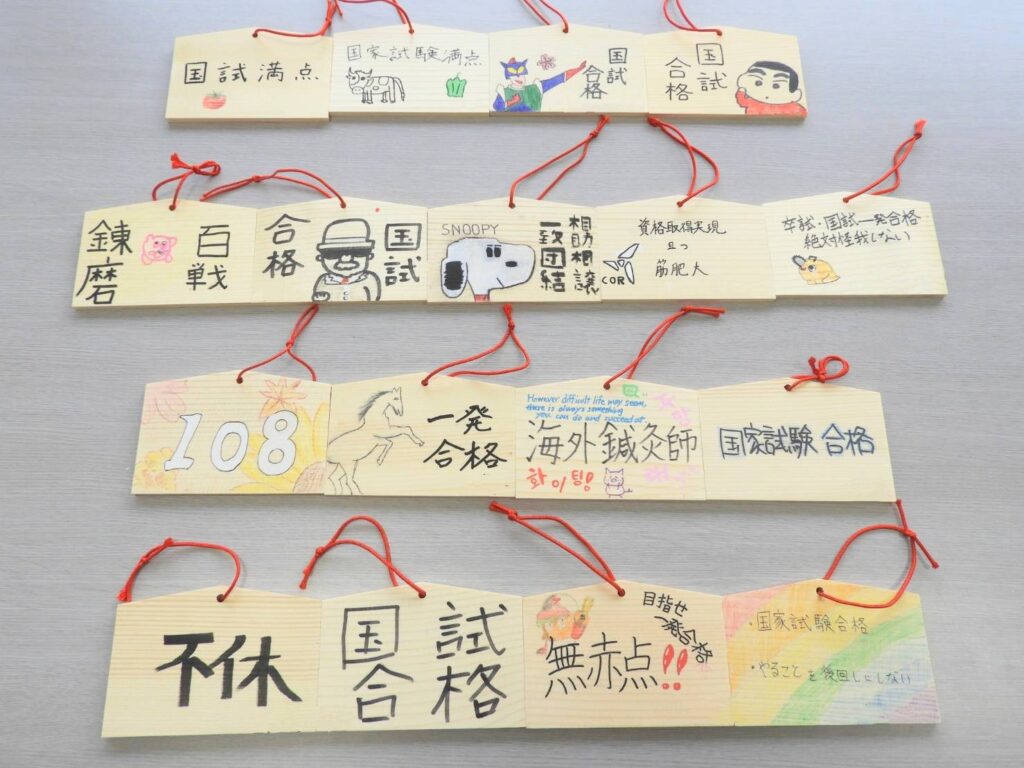 国試満点
国家試験満点
国試
合格
国試
合格
百戦
錬磨
国試
合格
SNOOPY
相助相譲
一致団結
資格取得実現
且つ
筋肥大
COR
卒試・国試一発合格
絶対怪我しない
108
一発
合格
However difficult life may seem,
there is always something
you can do and succeed at.
海外鍼灸師
화이팅!
国家試験合格
不休
国試
合格
目指せ
一発合格
無赤点!!
・国家試験合格
・やることを後回しにしない